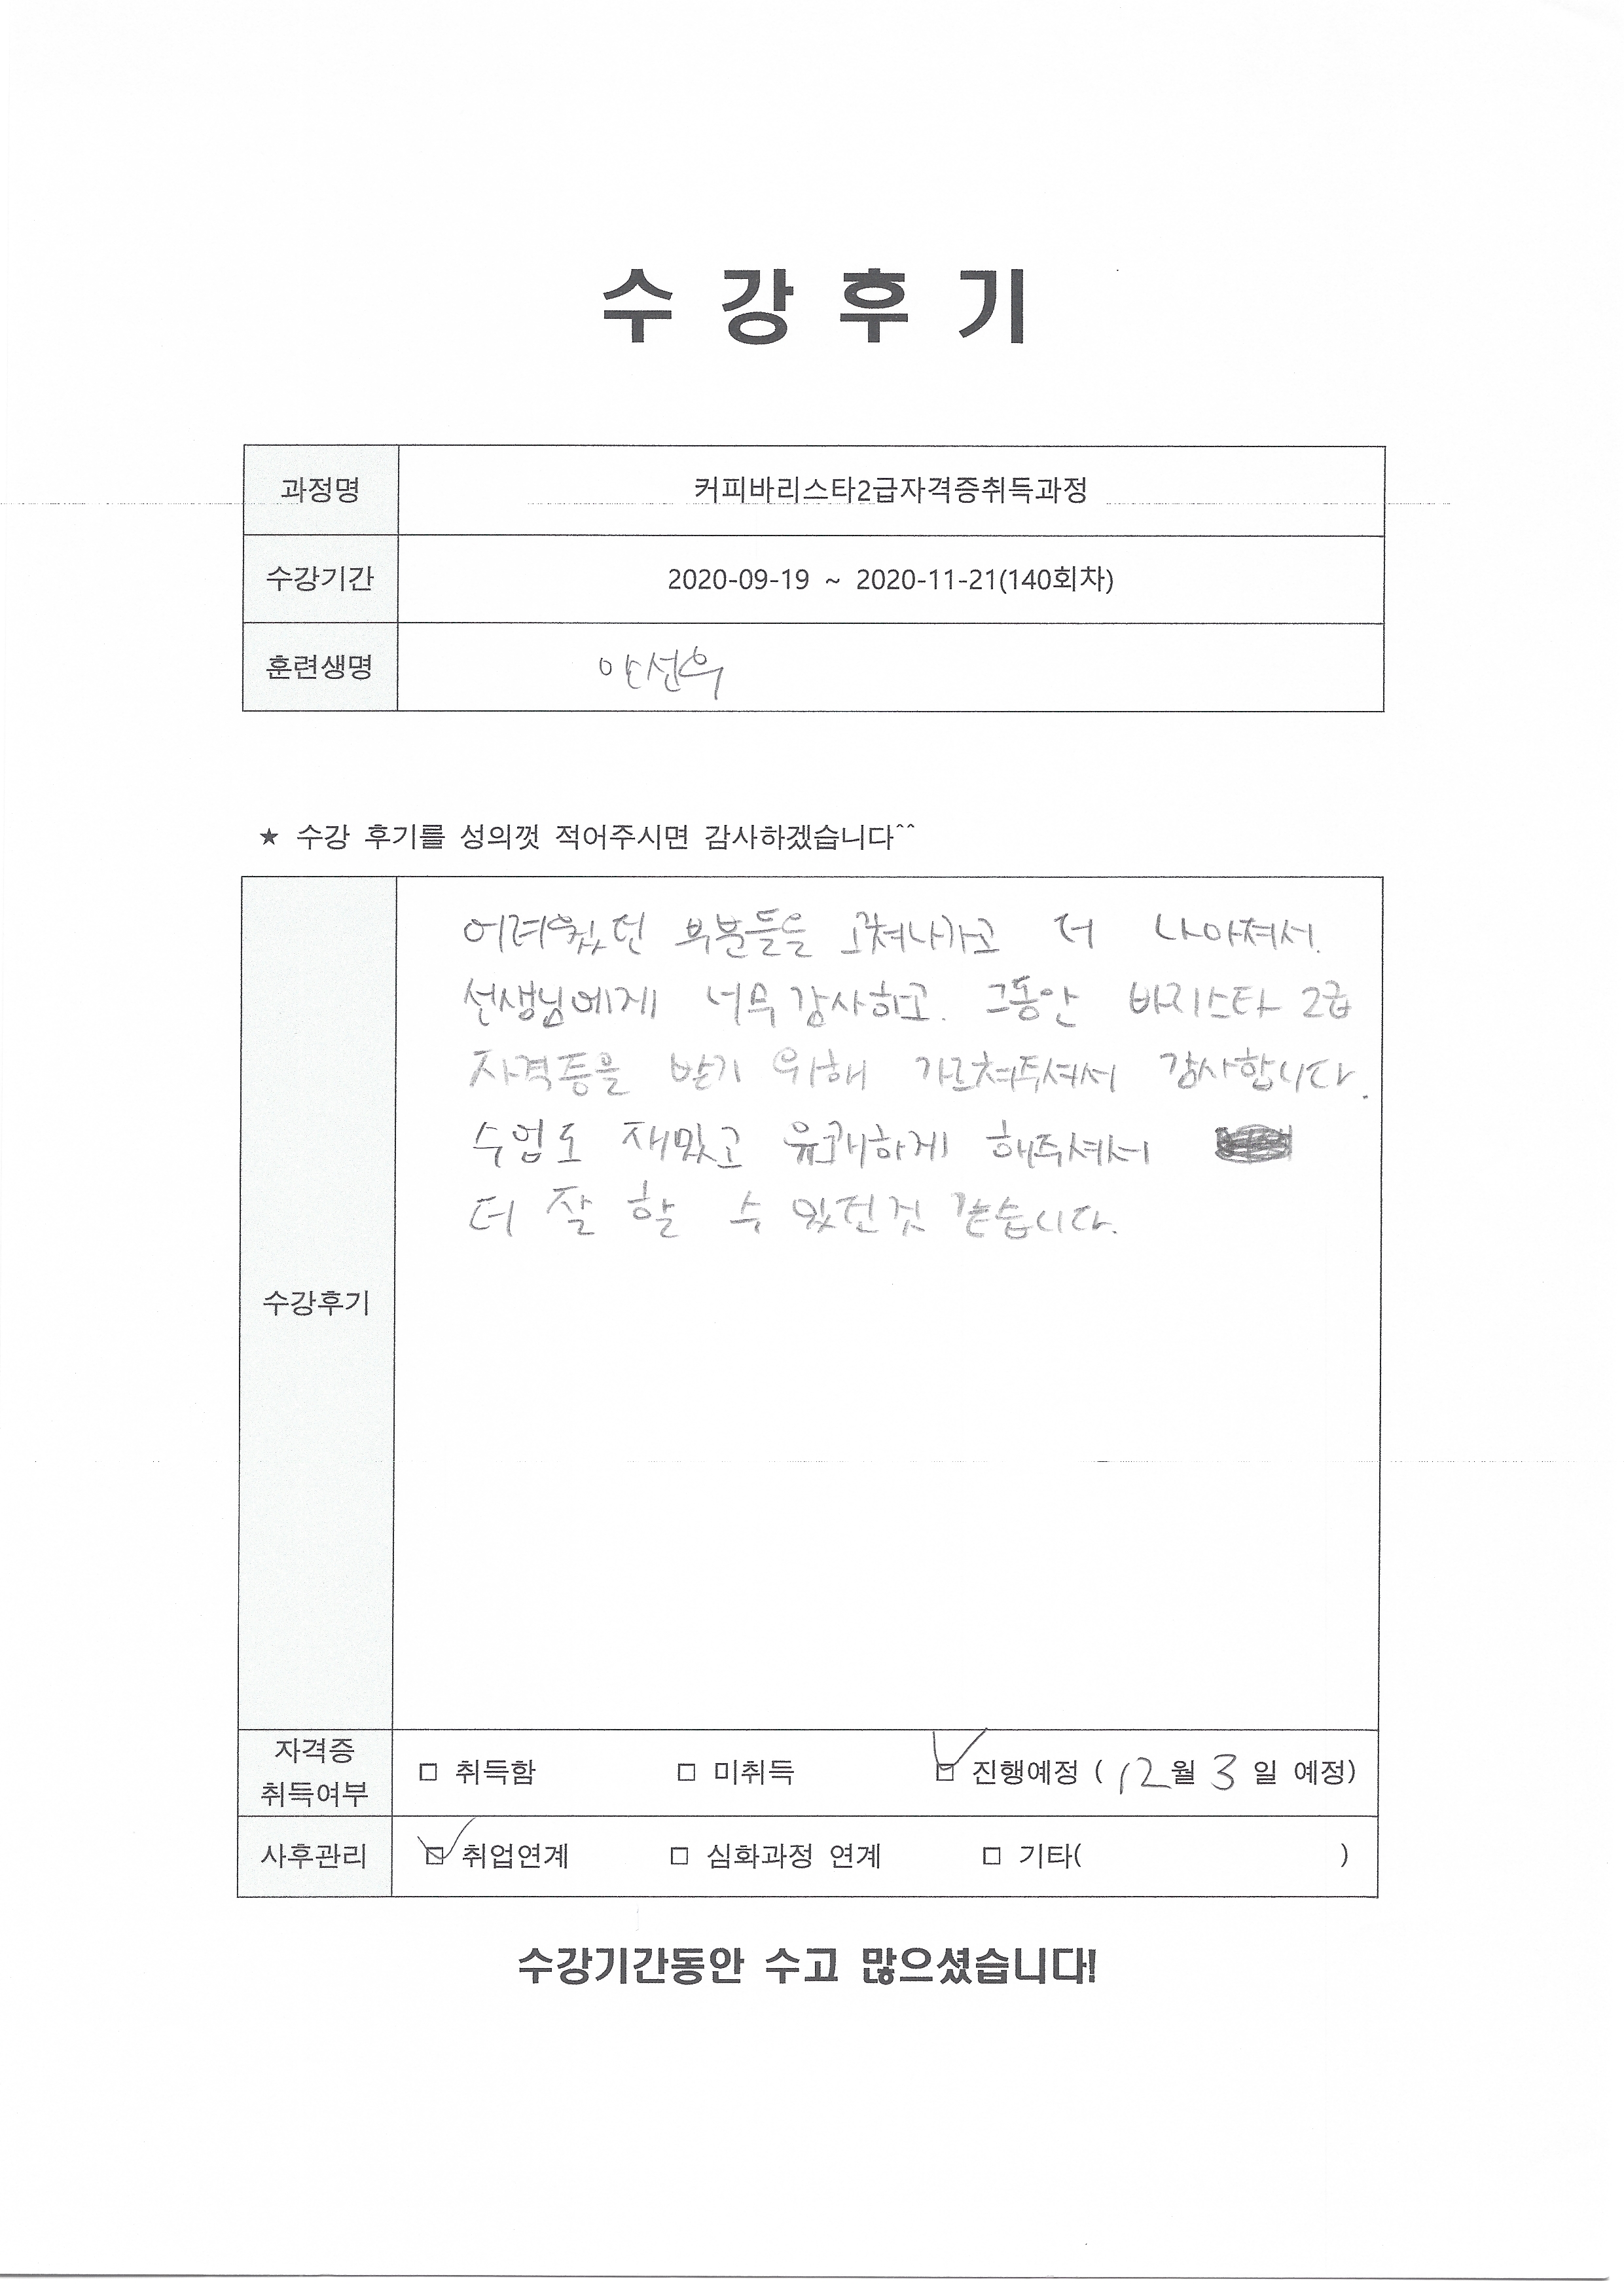 수 강 후 기
과정명 커피바리스타2급자격증취득과정
수강기간 2020-09-19 ~ 2020-11-21(140회차)
훈련생명 안선욱
★ 수강 후기를 성의껏 적어주시면 감사하겠습니다^^
어려웠던 부분들을 고쳐나가고 더 나아져서.
선생님에게 너무 감사하고. 그동안 바리스타 2급
자격증을 받기 위해 가르쳐주셔서 감사합니다.
수업도 재밌고 유쾌하게 해주셔서
더 잘 할 수 있던것 같습니다.
수강후기
자격증
취득여부
□ 취득함 □ 미취득 □ 진행예정 ( 12월 3 일 예정)
사후관리 □ 취업연계 □ 심화과정 연계 □ 기타( )
수강기간동안 수고 많으셨습니다!